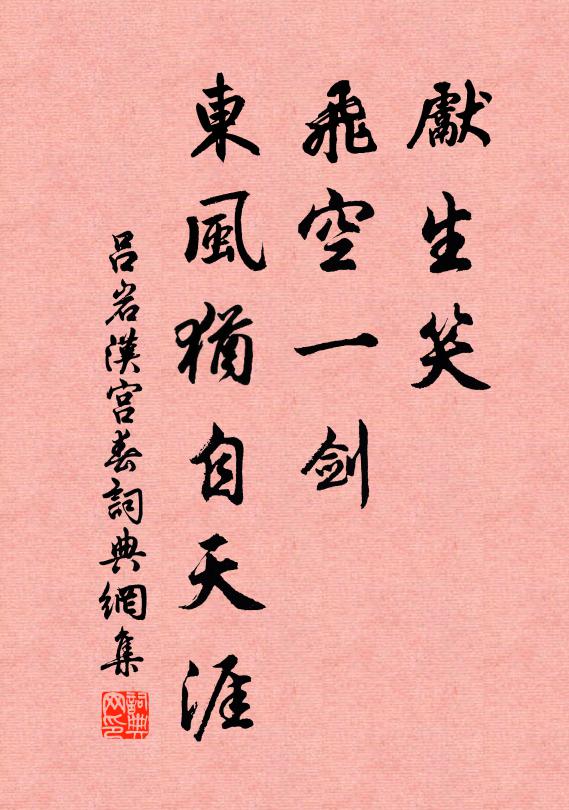 獻生笑
飛空一劍
東風猶自天涯
呂岩漢宮春詞典網集
詞典网印